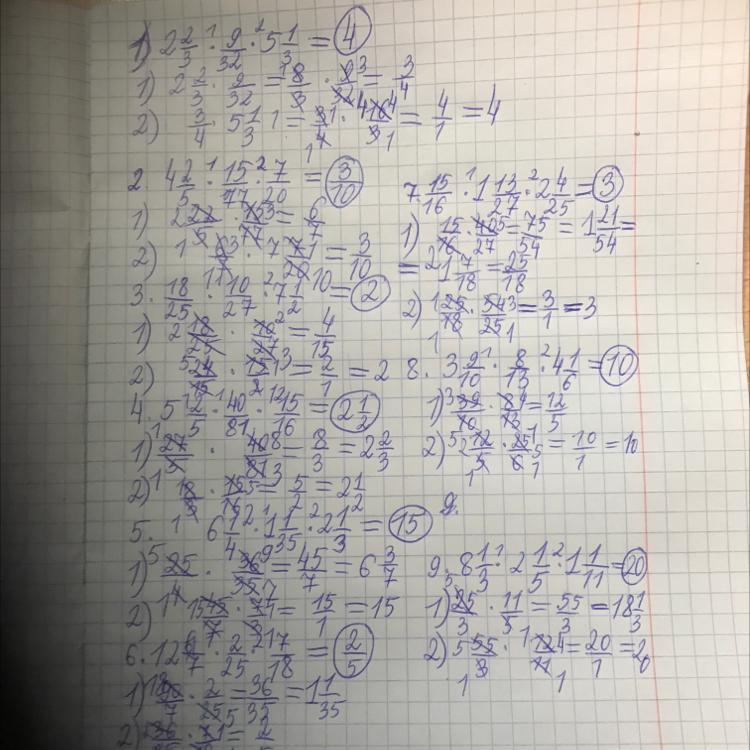 1) 2 2/3 · 9/32 · 5 1/3 = 4
1) 2 2/3 · 9/32 = 8/3 · 9/32 = 3/4
2) 3/4 · 5 1/3 = 3/4 · 16/3 = 4/1 = 4
2. 4 2/5 · 15/77 · 7/20 = 3/10
1) 22/5 · 15/77 = 6/7
2) 6/7 · 7/20 = 3/10
3. 18/25 · 10/27 · 7 1/2 = 2
1) 18/25 · 10/27 = 4/15
2) 4/15 · 15/2 = 2/1 = 2
4. 5 2/5 · 40/81 · 15/16 = 2 1/2
1) 27/5 · 40/81 = 8/3 = 2 2/3
2) 8/3 · 15/16 = 5/2 = 2 1/2
5. 6 1/4 · 1 1/35 · 2 1/3 = 15
1) 25/4 · 36/35 = 45/7 = 6 3/7
2) 45/7 · 7/3 = 15/1 = 15
6. 12 6/7 · 2/25 · 17/18 = 2/5
1) 90/7 · 2/25 = 36/35 = 1 1/35
7. 15/16 · 1 13/27 · 2 4/25 = 3
1) 15/16 · 40/27 = 75/54 = 1 21/54 =
= 1 7/18 = 25/18
2) 25/18 · 54/25 = 3/1 = 3
8. 3 9/10 · 8/13 · 4 1/6 = 10
1) 39/10 · 8/13 = 12/5
2) 12/5 · 25/6 = 10/1 = 10
9.
9. 8 1/3 · 2 1/5 · 1 1/11 = 20
1) 25/3 · 11/5 = 55/3 = 18 1/3
2) 55/3 · 12/11 = 20/1 = 20